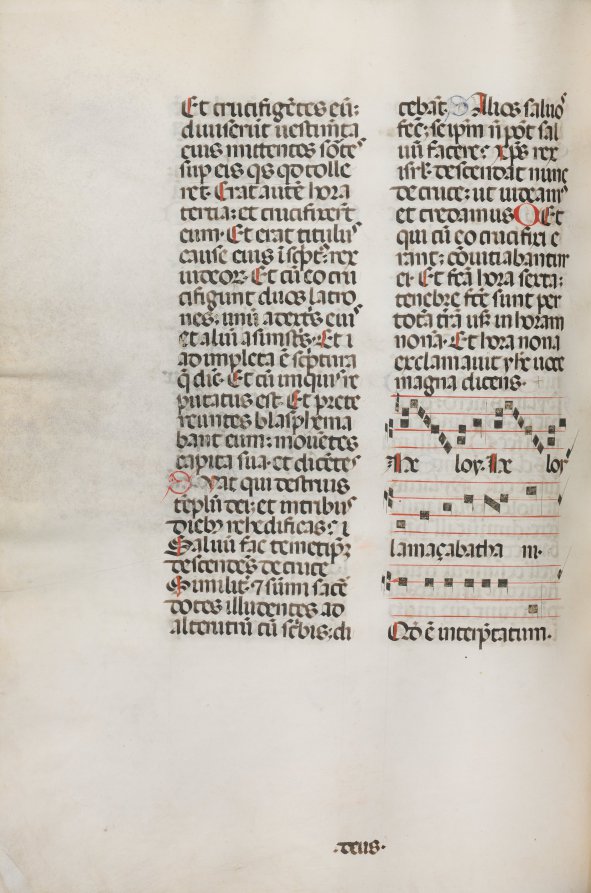 Et crucifigẽtes eũ:
diuiserũt uestimẽta
eius mittentes sõtẽ
sup eis q̃s q̃d tolle
ret. Erat autẽ hora
tertia: et crucifixerũt
eum. Et erat titulus
cause eius ĩscpt̃: rex
iudeoꝝ. Et cũ eo cru
cifigunt duos latro
nes. unũ a dextris eius
et aliũ a sinistris. Et
adimpleta ẽ scptura
q̃ dic̃. Et cũ iniquis re
putatus est. Et prete
reuntes blasphema
bant eum: mouẽtes
capita sua. et dicẽtes
Vat qui destruis
teplũ dei: et ĩ tribus
dieb rehedificas:
Saluũ fac temetip̃ʒ
descendẽs de cruce
Similit̃. ⁊ sũmi sacẽ
dotes illudentes ad
alterutrũ cũ scbis: di
cebãt. Alios saluos
fec̃: se ip̃m ñ pot̃ sal
uũ facere: xp̃s rex
isrł. descendat nunc
de cruce: ut uideamus
et credamus Et
qui cũ eo crucifixi e
rant: cõuitiabantur
ei. Et fc̃a hora sexta:
tenebre fc̃e sunt per
totã tr̃a usꝫ in horam
nona. Et hora nona
exclamauit yhc uoce
magna dicens.
He loy. He loy
lamaçabatha ni.
Qd ẽ interp̃tatum.
.deus.